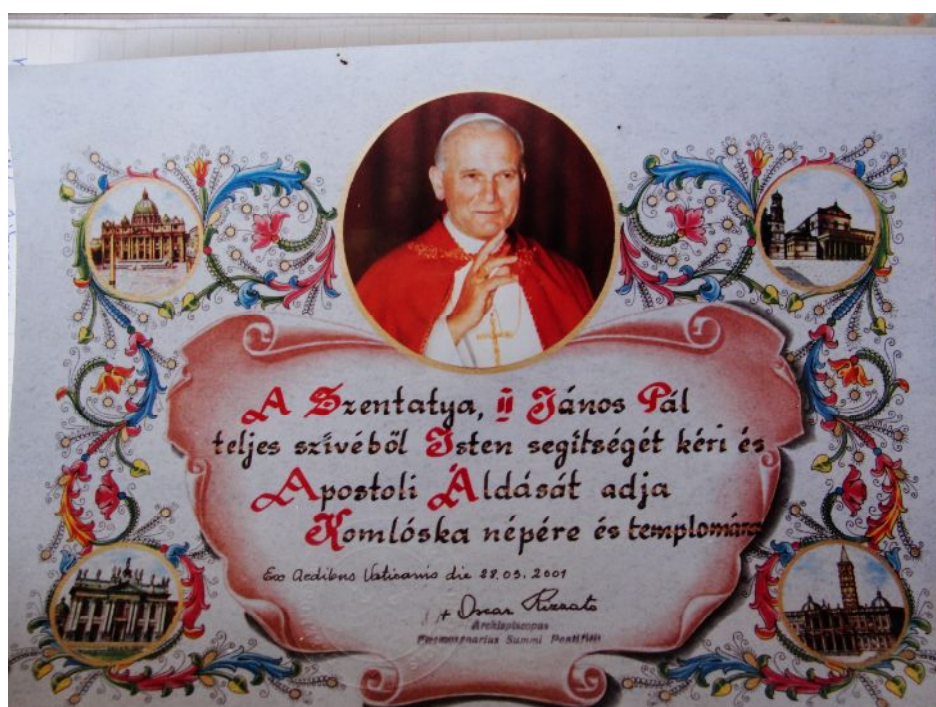 A Szentatya, II János Pál
teljes szívéből Isten segítségét kéri és
Apostoli Áldását adja
Komlóska népére és templomára
Ex Aedibus Vaticanis die 28.03.2001
+ Oscar Rizzato
Archiepiscopus
Eleemosynarius Summi Pontificis